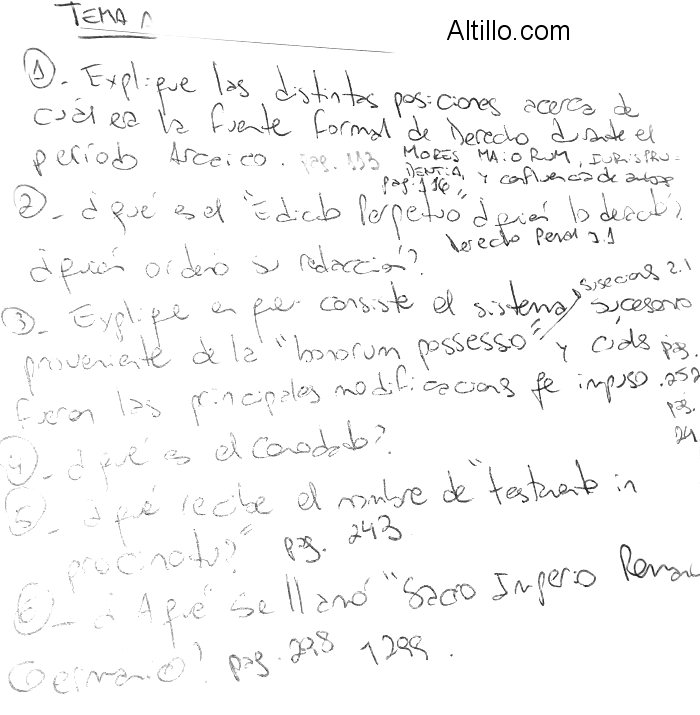 TEMA 1
Altillo.com
1- Explique las distintas posiciones acerca de
cuál es la fuente formal de Derecho durante el
período Arcaico. pag. 113 MORES MAIORUM, IURISPRU-
DENTIA, y confluencia de
pag. 116
2- ¿que es el "Edicto Perpetuo" ¿quién lo
Derecho Penal 2.1
¿quién ordeno su redacción?
3- Explique en que consiste el sistema sucesorio
proveniente de la "bonorum possessio" y cuáles pag.
fueron las principales modificaciones que impuso. 252
pag.
24
4- ¿qué es el Comodato?
5- ¿qué recibe el nombre de "testamento in
procinctu?" pag. 243
6- ¿A qué se llamó "Sacro Imperio Roman
Germanico? pag. 298 1299.